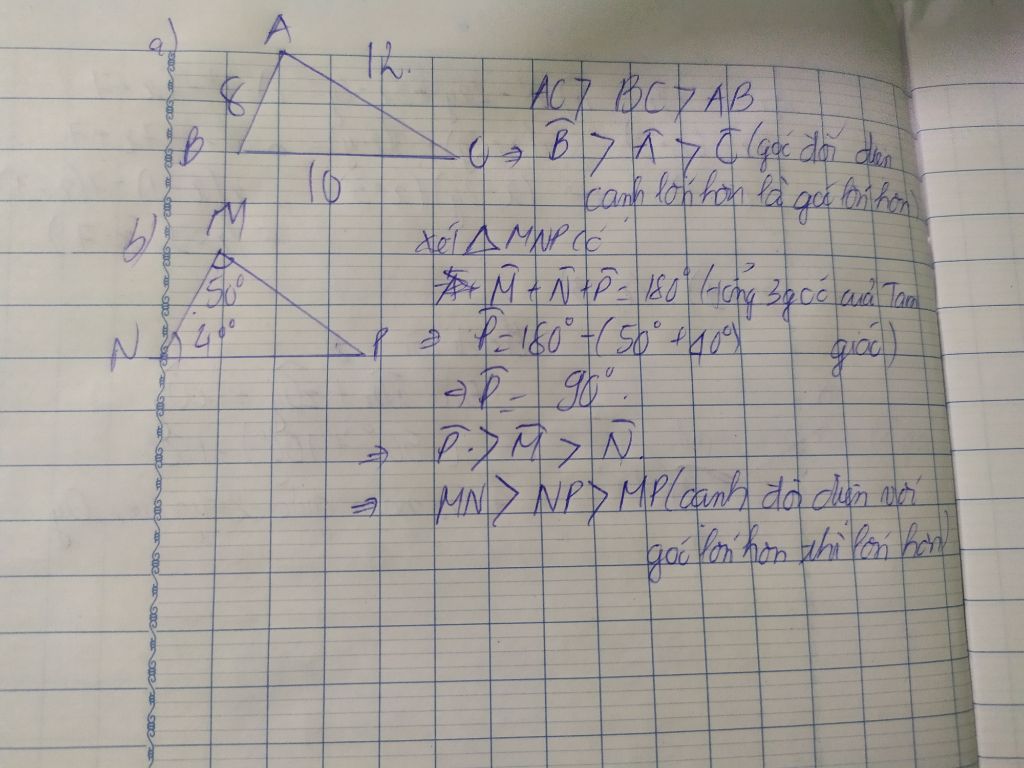 a)
A
8
12.
B
10
C
AC > BC > AB
⇒ B̂ > Â > Ĉ (góc đối diện
cạnh lớn hơn là góc lớn hơn)
b)
M
50°
N
40°
P
Xét △ MNP có
M̂ + N̂ + P̂ = 180° (tổng 3 góc của Tam
giác)
⇒ P̂ = 180° - (50° + 40°)
⇒ P̂ = 90°.
⇒ P̂ > M̂ > N̂.
⇒ MN > NP > MP (cạnh đối diện với
góc lớn hơn thì lớn hơn)